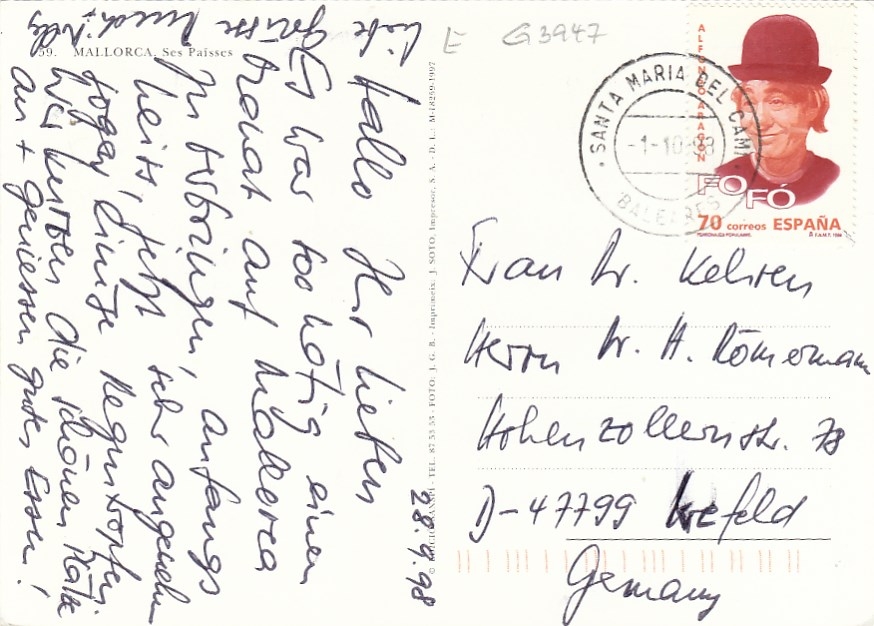 59. MALLORCA. Ses Païsses
28.9.98
Hallo Ihr Lieben
Es war so nötig einen
Monat auf Mallorca
zu verbringen, anfangs
heiss, jetzt sehr angenehm
sogar einige Regentropfen.
Wir kennen die schönen Plätze
an + geniessen gutes Essen!
Liebe Grüsse
E G3947
ALFONSO ARAGON
FOFÓ
70 correos ESPAÑA
PERSONAJES POPULARES.
F.N.M.T. 1998
SANTA MARIA DEL CAMI
-1-10-98
BALEARES
Frau Dr. Kehren
Herrn Dr. H. Römermann
Hohenzollernstr. 78
D-47799 Krefeld
Germany
TEL. 87 55 55 - FOTO: J. G. B. - Imprimeix. J. SOTO, Impresor, S. A. - D. L.: M-18259-1997